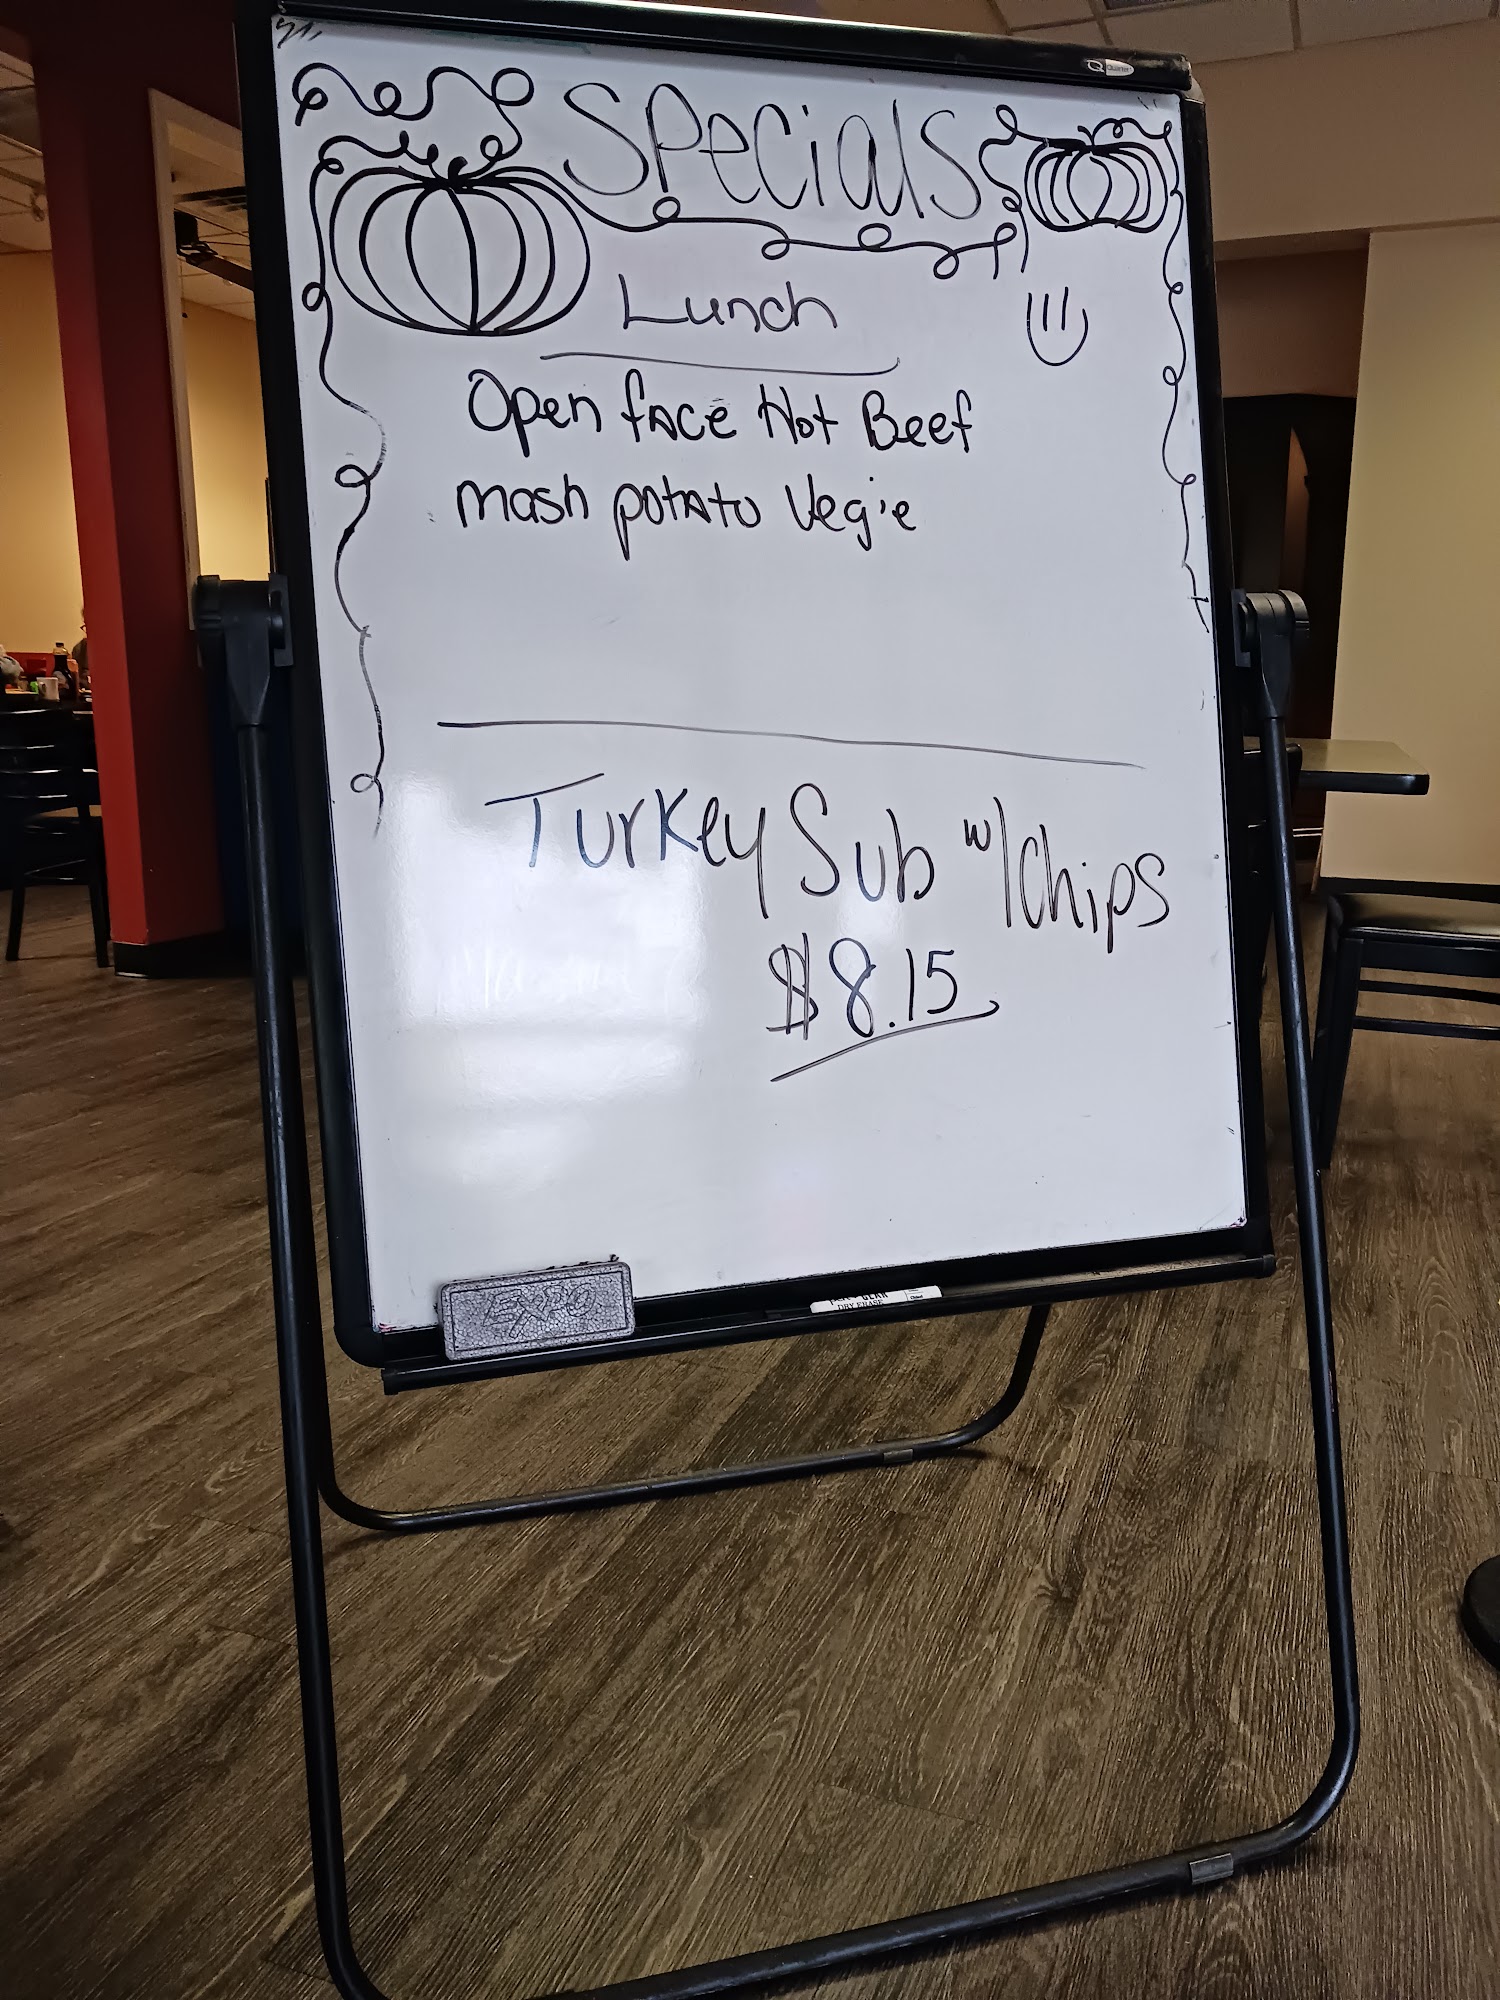 Quartet
Specials
Lunch
Open face Hot Beef
mash potato Vegie
Turkey Sub w/Chips
$8.15
EXPO
DRY ERASE